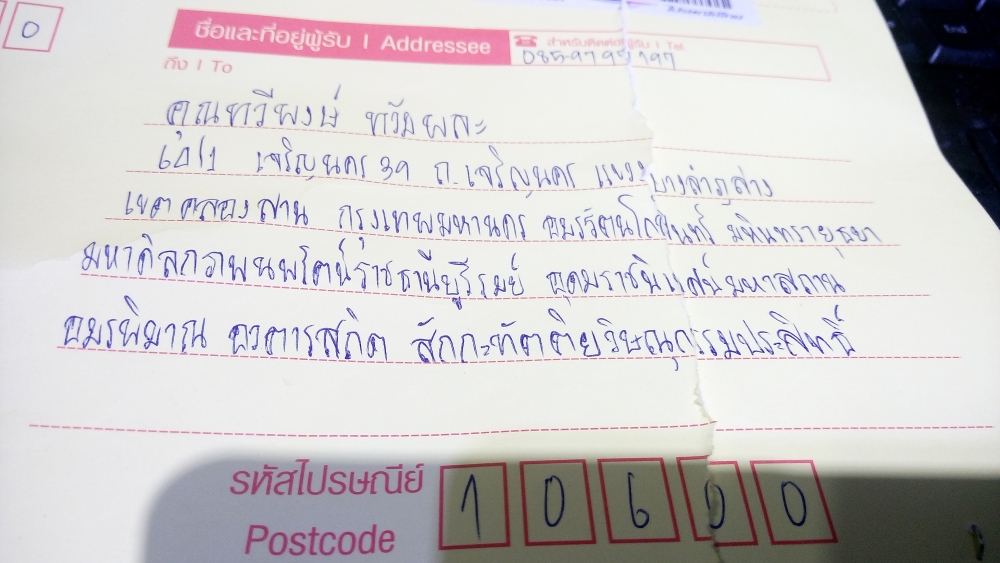 0
ชื่อและที่อยู่ผู้รับ | Addressee
สำหรับติดต่อผู้รับ | Tel.
ถึง | To
คุณทวีพงษ์
เจริญนคร 39 ถ.เจริญนคร แขวงบางลำภูล่าง
เขตคลองสาน กรุงเทพมหานคร อมรรัตนโกสินทร์ มหินทรายุธยา
มหาดิลกภพนพรัตน์ราชธานีบูรีรมย์ อุดมราชนิเวศน์มหาสถาน
อมรพิมาน อวตารสถิต สักกะทัตติยวิษณุกรรมประสิทธิ์
รหัสไปรษณีย์
Postcode
10600
End